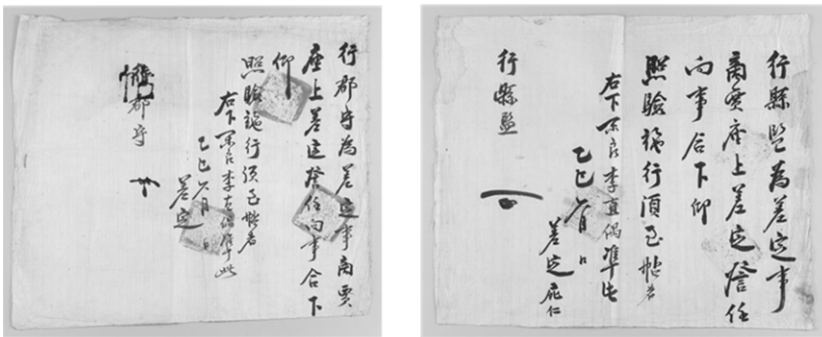 行郡守為差定事商賈
座上差定察任向事合下
仰
照驗施行須至帖者
右下閑良李直偶準此
乙巳 月 日
差定
郡守
行縣監為差定事
商賈座上差定察任
向事合下仰
照驗施行須至帖者
右下閑良李直偶準此
乙巳 月 日
差定 庇仁
行縣監